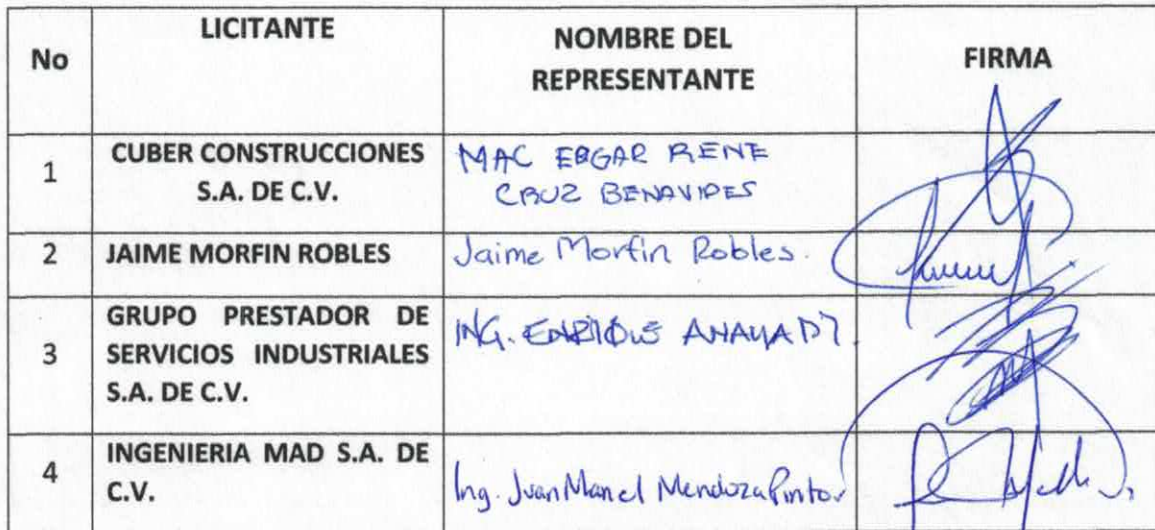 No LICITANTE NOMBRE DEL REPRESENTANTE FIRMA
1 CUBER CONSTRUCCIONES MAC EDGAR RENE
S.A. DE C.V. CRUZ BENAVIDES
2 JAIME MORFIN ROBLES Jaime Morfin Robles.
GRUPO PRESTADOR DE
3 SERVICIOS INDUSTRIALES ING. ENRIQUE ANAYA
S.A. DE C.V.
INGENIERIA MAD S.A. DE
4 C.V. Ing. Juan Manel Mendoza Pintor